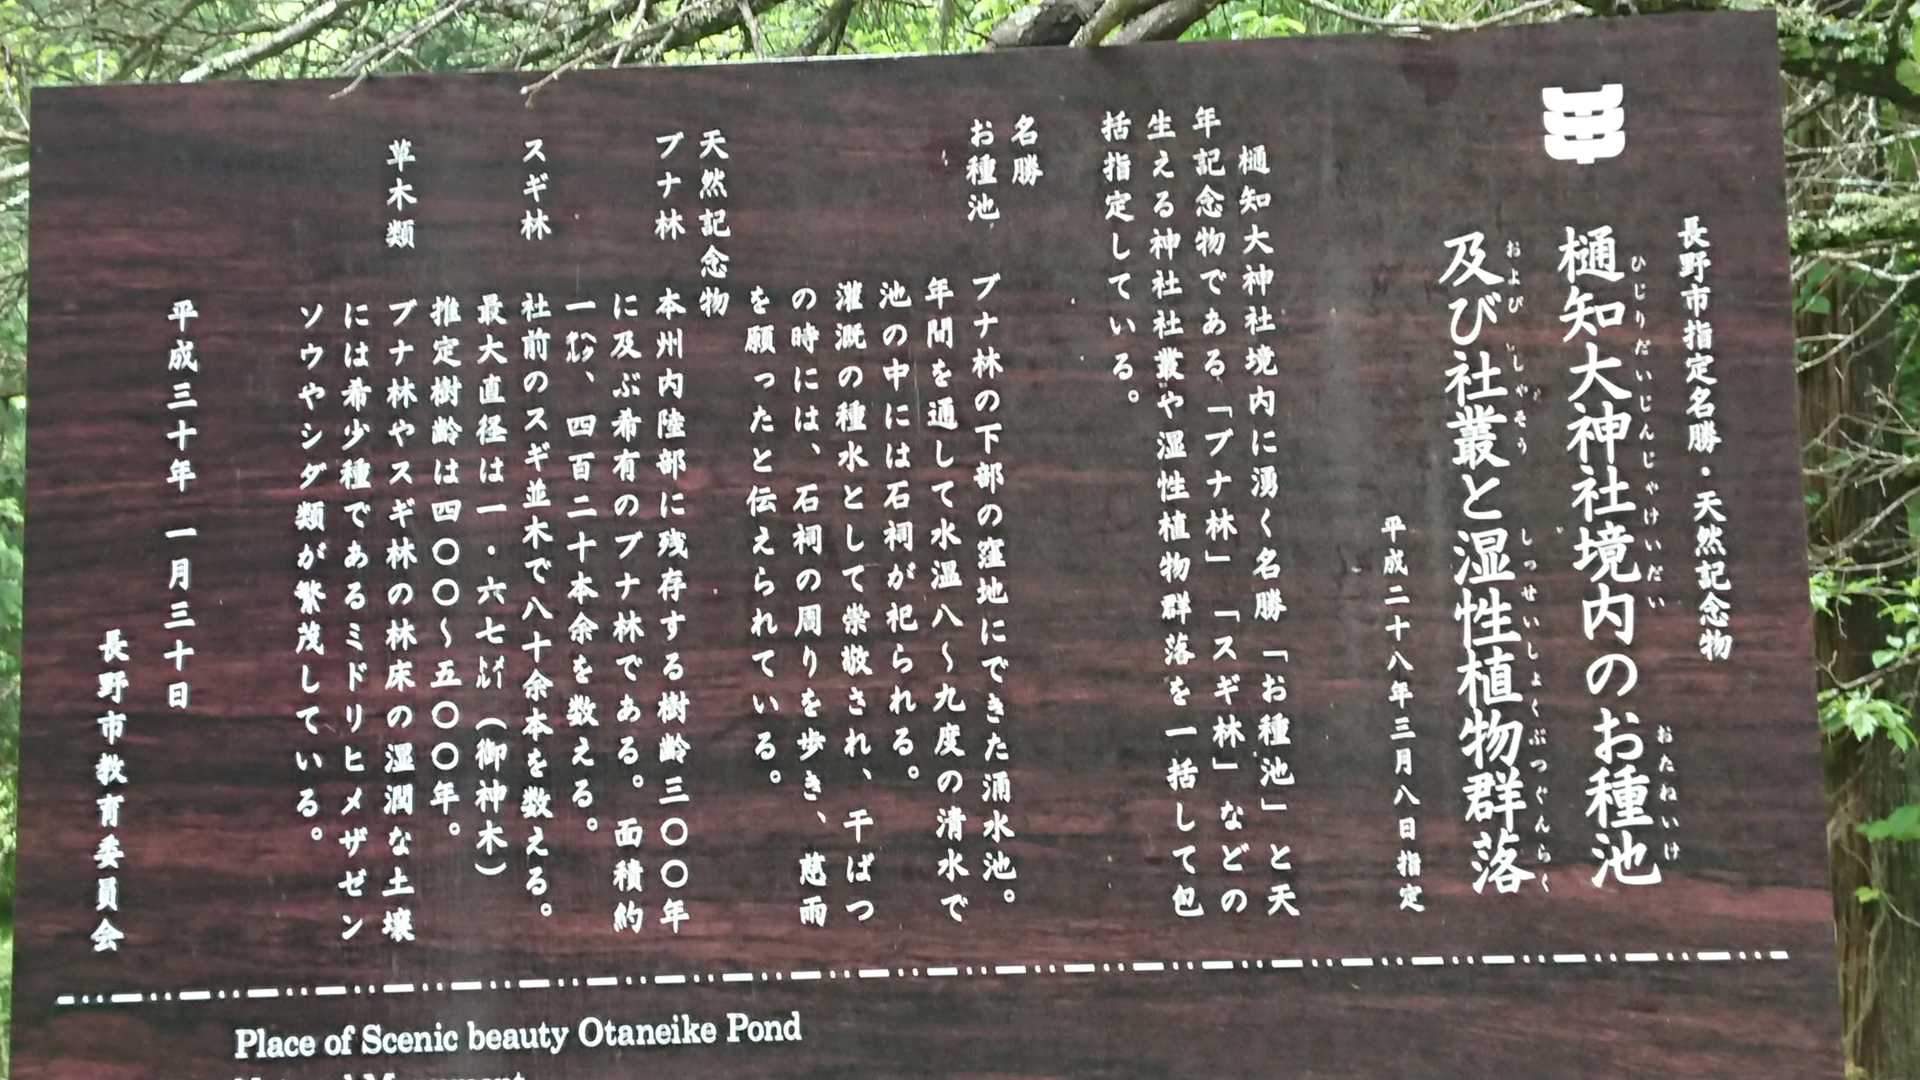 長野市指定名勝・天然記念物
樋知大神社境内のお種池
ひじりだいじんじゃけいだい おたねいけ
及び社叢と湿性植物群落
および しゃそう しっせいしょくぶつぐんらく
平成二十八年三月八日指定
樋知大神社境内に湧く名勝「お種池」と天
年記念物である「ブナ林」「スギ林」などの
生える神社社叢や湿性植物群落を一括して包
括指定している。
名勝
お種池
ブナ林の下部の窪地にできた涌水池。
年間を通して水温八〜九度の清水で
池の中には石祠が祀られる。
灌漑の種水として崇敬され、干ばつ
の時には、石祠の周りを歩き、慈雨
を願ったと伝えられている。
天然記念物
ブナ林
本州内陸部に残存する樹齢三〇〇年
に及ぶ希有のブナ林である。面積約
一㌶、四百二十本余を数える。
スギ林
社前のスギ並木で八十余本を数える。
最大直径は一・六七㍍（御神木）
推定樹齢は四〇〇〜五〇〇年。
草木類
ブナ林やスギ林の林床の湿潤な土壌
には希少種であるミドリヒメザゼン
ソウやシダ類が繁茂している。
平成三十年 一月三十日
長野市教育委員会
Place of Scenic beauty Otaneike Pond